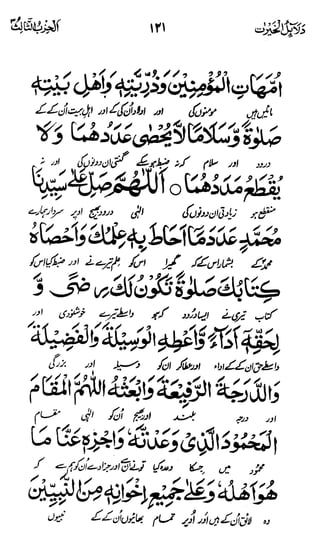 دلائل الخیرات ۱۲۱ الحزب الثالث
اُمَّهَاتِ الْمُؤْمِنِيْنَ وَذُرِّيَّتِهٖ وَاَهْلِ بَيْتِهٖ
مائیں ہیں مومنوں کی اور اولاد اُن کی کے اور اہل بیت اُن کے کے
صَلٰوةً وَّسَلَامًا لَّا يُحْصٰى عَدَدُهُمَا وَلَا
درود اور سلام کہ نہ ضبط ہو سکے گنتی ان دونوں کی اور نہ
يُقْطَعُ مَدَدُهُمَا ○ اَللّٰهُمَّ صَلِّ عَلٰى سَيِّدِنَا
منقطع ہو زیادتی ان دونوں کی الٰہی درود بھیج اوپر سردار ہمارے
مُحَمَّدٍ عَدَدَ مَا اَحَاطَ بِهٖ عِلْمُكَ وَاَحْصَاهُ
محمد کے بشمار اس کے کہ گھیرا اس کو علم تیرے نے اور ضبط کیا اس کو
كِتَابُكَ صَلٰوةً تَكُوْنُ لَكَ رِضًى وَّ
کتاب تیری نے ایسا درود کہ ہو واسطے تیرے خوشنودی اور
لِحَقِّهٖ اَدَاءً وَّاَعْطِهِ الْوَسِيْلَةَ وَالْفَضِيْلَةَ
واسطے حق ان کے کے اداء اور عطا کر ان کو وسیلہ اور بزرگی
وَالدَّرَجَةَ الرَّفِيْعَةَ وَابْعَثْهُ اللّٰهُمَّ الْمَقَامَ
اور درجہ بلند اور بھیج اُن کو الٰہی مقام
الْمَحْمُوْدَ الَّذِيْ وَعَدْتَّهٗ وَاجْزِهٖ عَنَّا مَا
محمود میں جسکا وعدہ کیا تو نے ان سے اور جزا دے اُن کو ہم سے کہ
هُوَ اَهْلُهٗ وَعَلٰى جَمِيْعِ اِخْوَانِهٖ مِنَ النَّبِيِّيْنَ
وہ لائق اُس کے ہیں اور اُوپر تمام بھائیوں اُن کے کے نبیوں